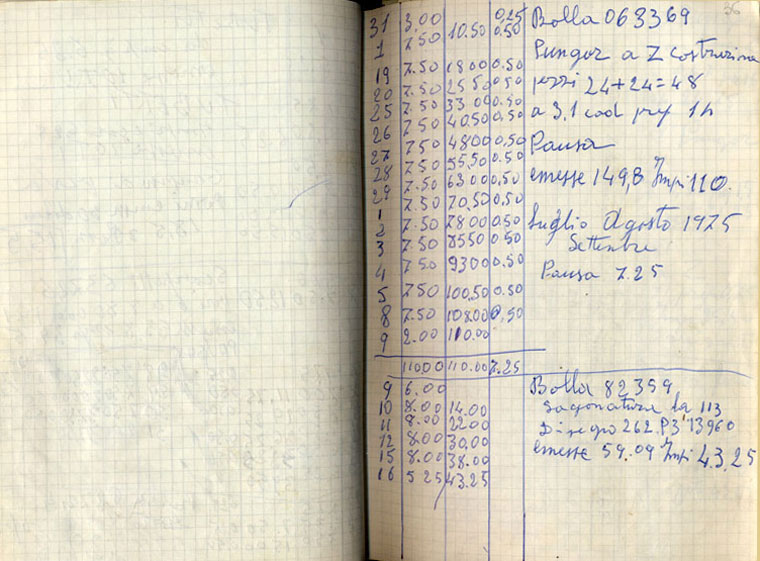 36
31 3,00 0,25 Bolla 063369
1 7.50 10.50 0,50
Pungor a Z costruzione
19 7.50 1800 0.50
20 7.50 25.50 0,50 pezzi 24+24=48
25 7.50 3300 0.50
26 7.50 40.50 0,50 a 3,1 cad 1h
27 7.50 4800 0,50 Pausa
28 7.50 55,50 0.50
29 7.50 6300 0,50 emesse 149,8 110.
1 7.50 70,50 0,50
2 7.50 7800 0,50 Luglio Agosto 1975
3 7.50 8550 0,50 Settembre
4 7.50 9300 0.50
Pausa 7.25
5 7.50 100,50 0.50
8 7.50 108.00 0,50
9 2.00 110.00
11000 110.00 7.25
9 6.00 Bolla 82359
10 8.00 14.00 113
11 8.00 22.00 Disegno 262.P3 13960
12 8.00 30,00
15 8.00 38.00 emesse 59.09 43,25
16 5 25 43.25